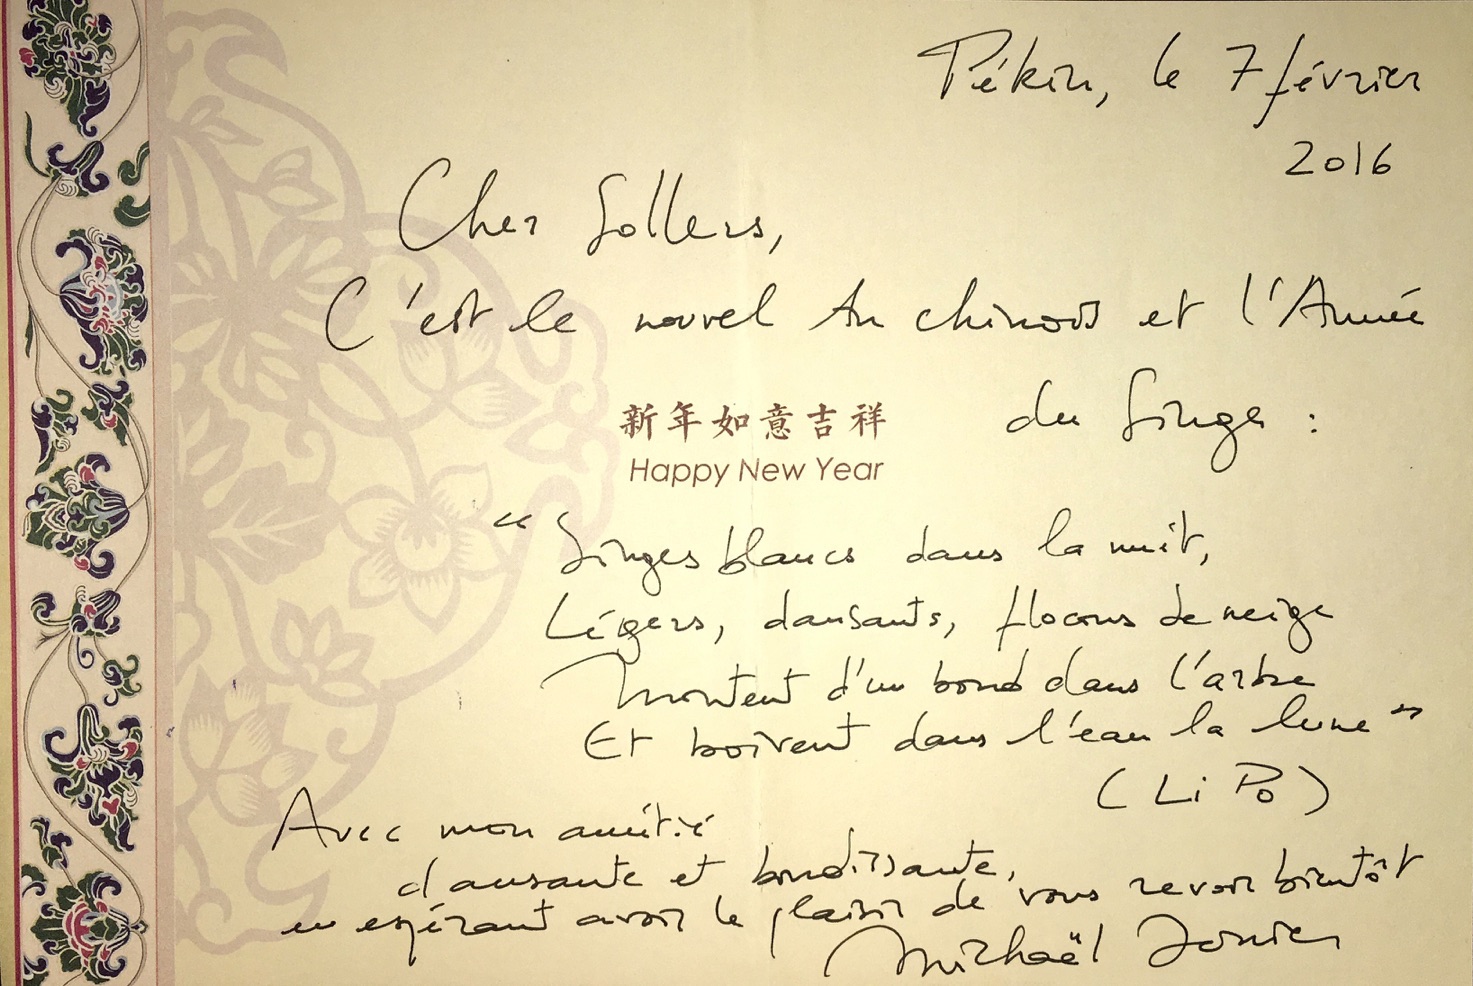 Pékin, le 7 février
2016
Cher Sollers,
C'est le nouvel An chinois et l'Année
du Singe :
新年如意吉祥
Happy New Year
“Singes blancs dans la nuit,
Légers, dansants, flocons de neige
Montent d'un bond dans l'arbre
Et boivent dans l'eau la lune”
(Li Po)
Avec mon amitié
dansante et bondissante,
en espérant avoir le plaisir de vous revoir bientôt
Michaël Ferrier